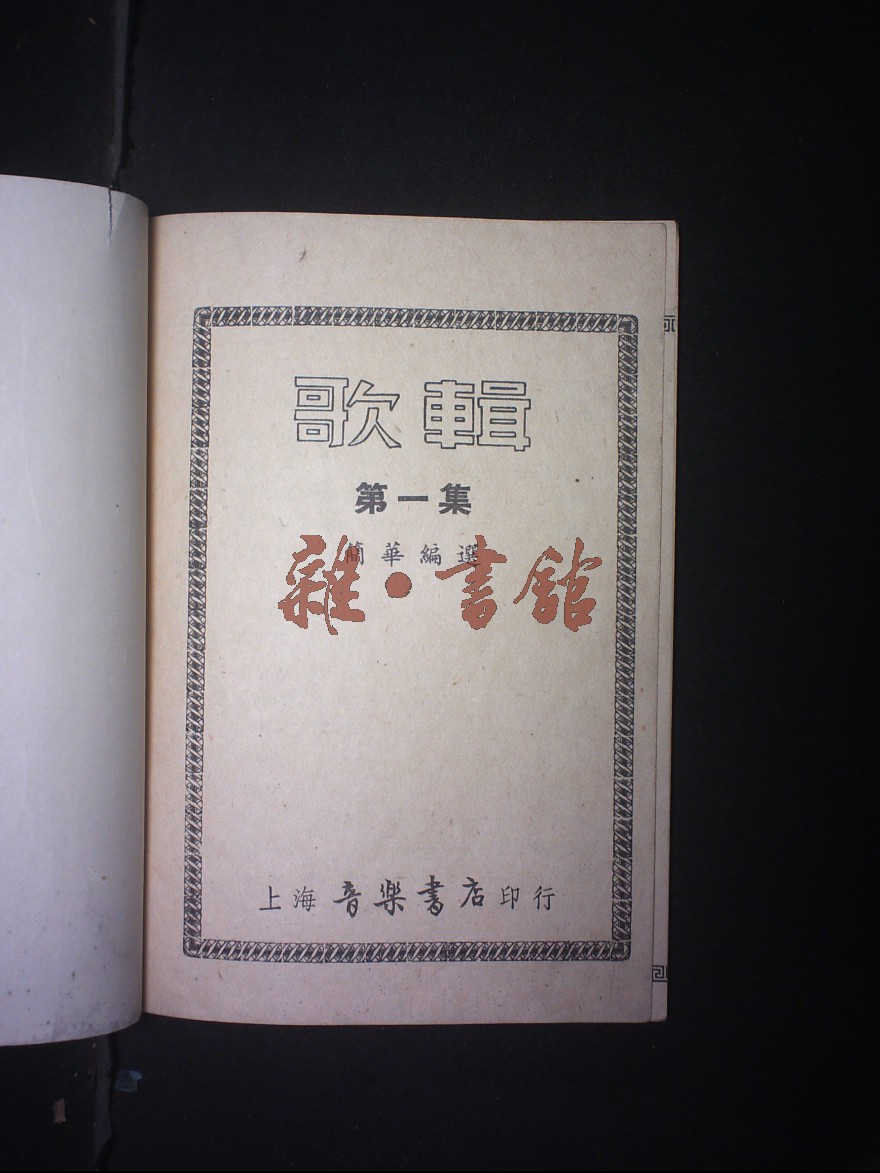 歌輯
第一集
簡華編選
雜·書館
上海音樂書店印行